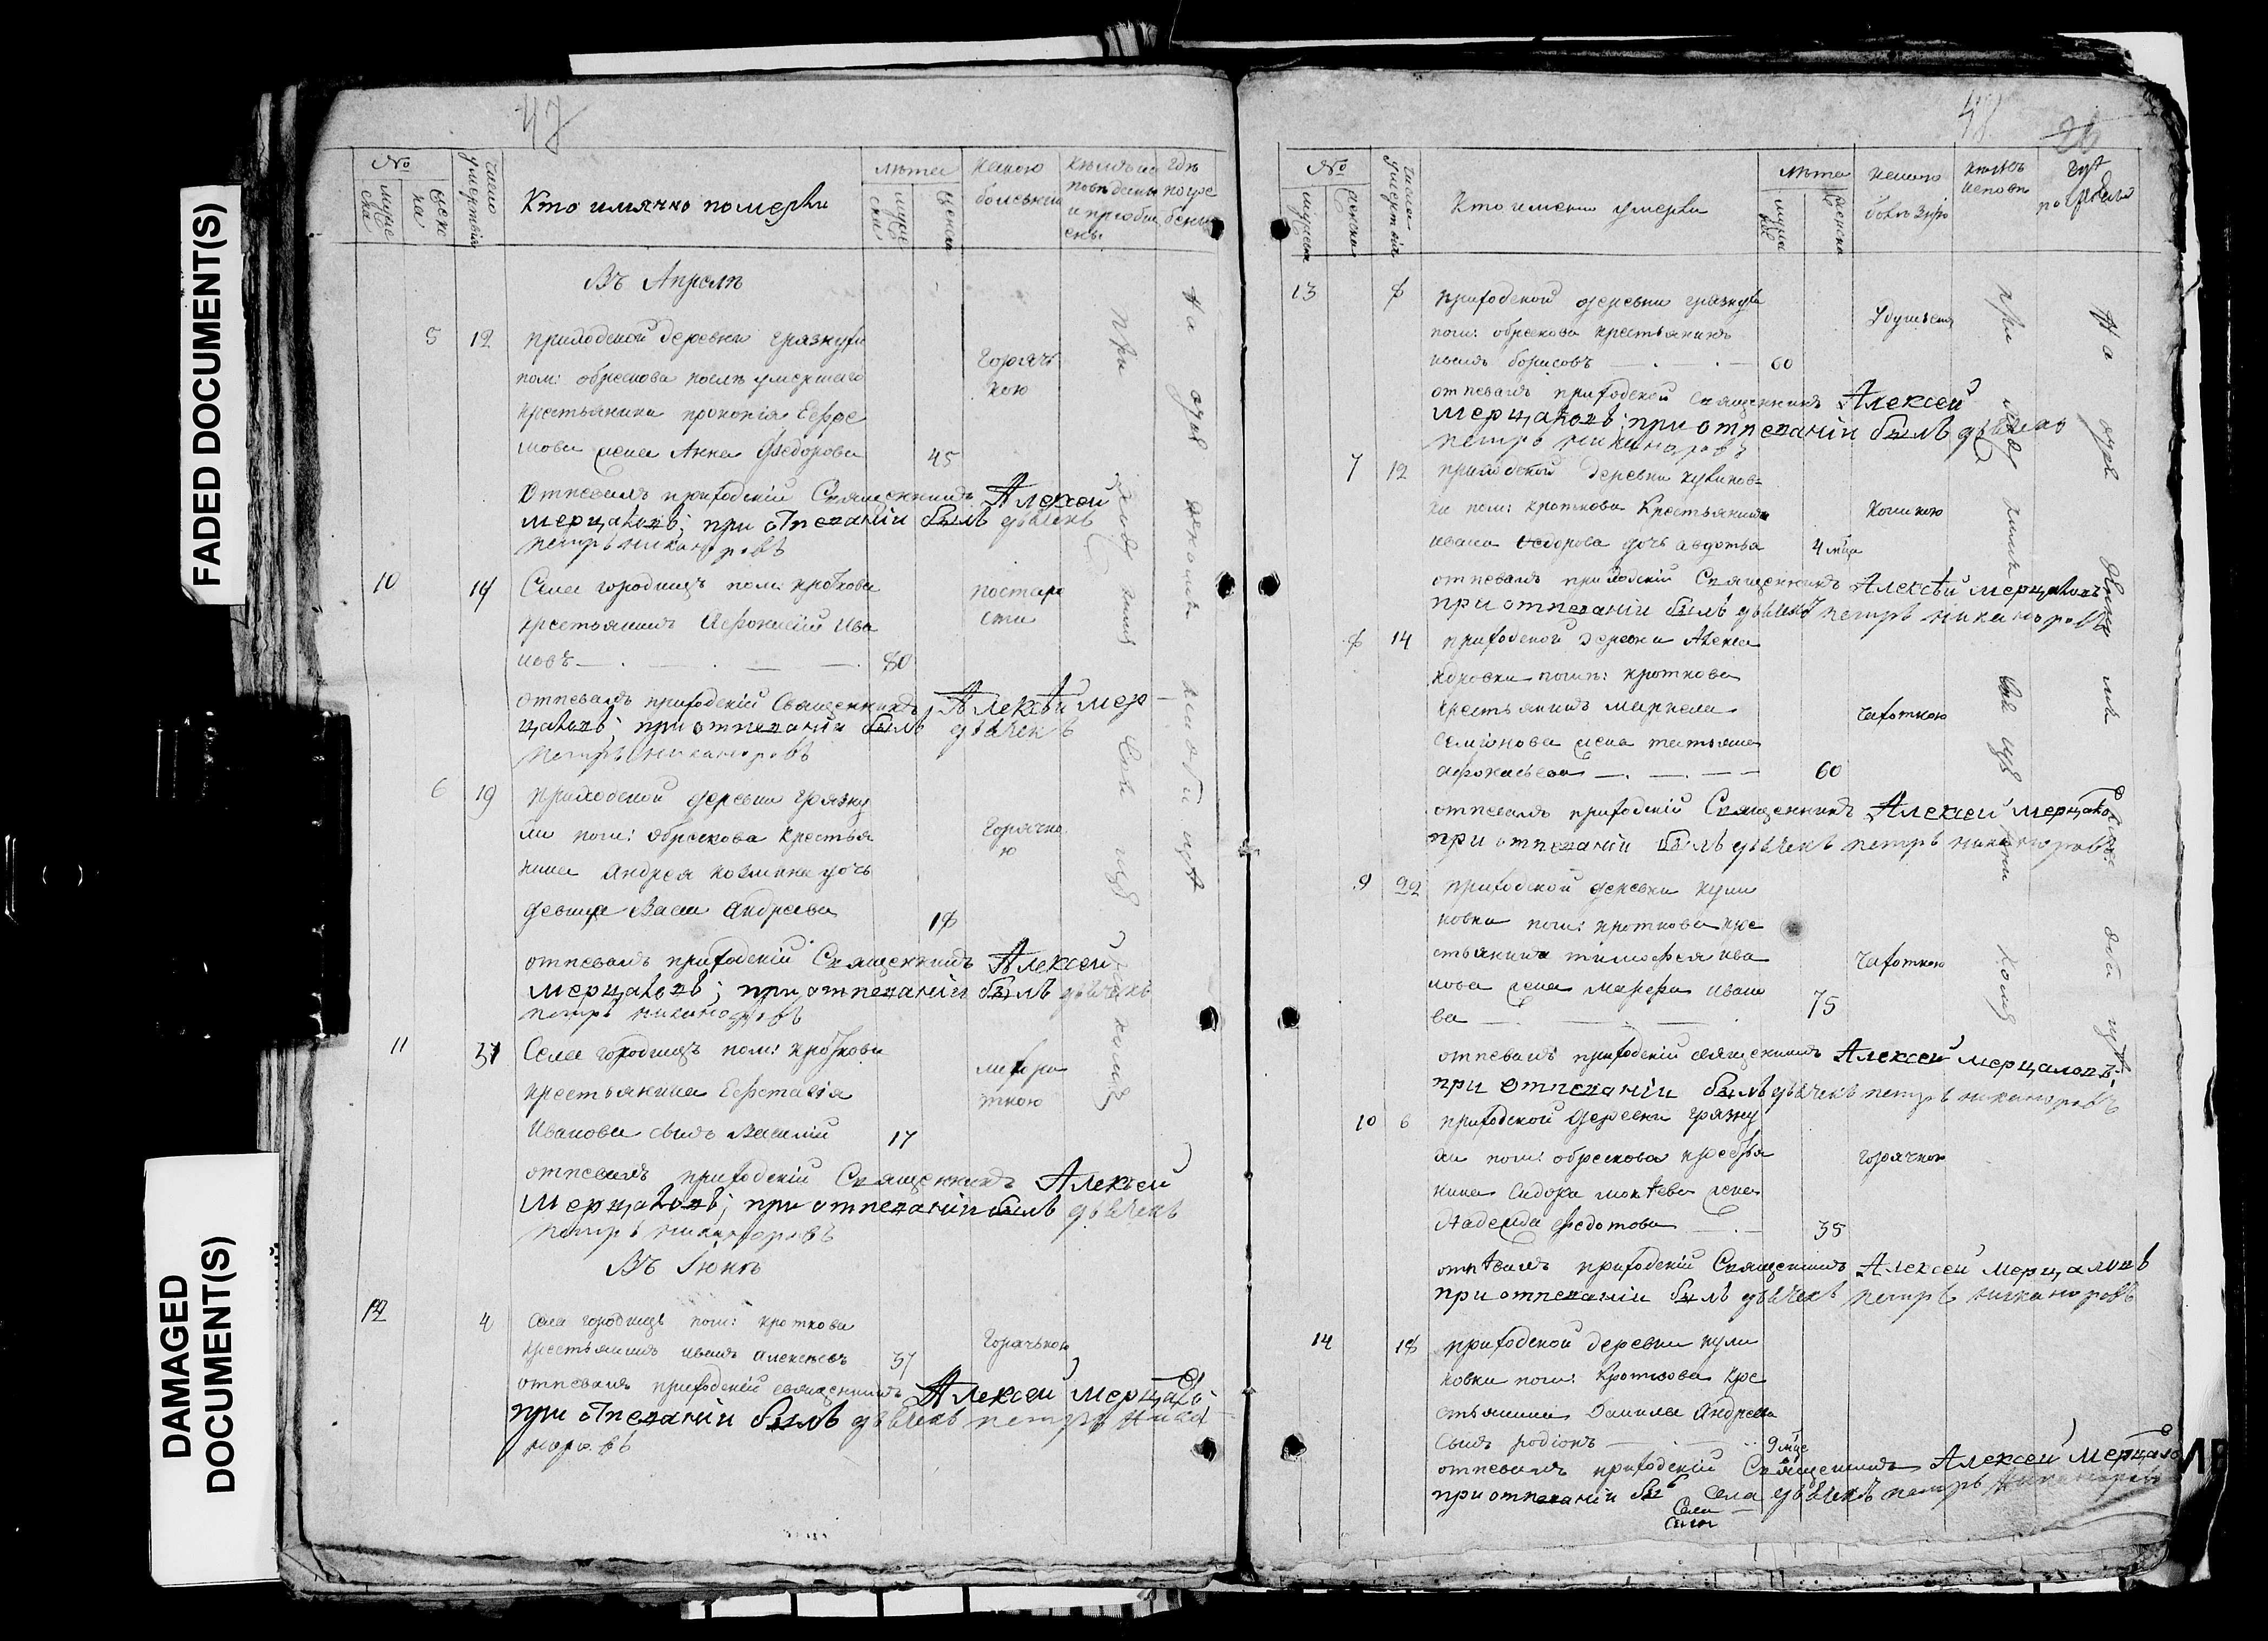 FADED DOCUMENT(S)
DAMAGED DOCUMENT(S)
47
№
мужеска
женска
число умертвія
Кто имячно померли
лѣта
мужеска
женска
какою болезнію
кѣм исповѣданы и пріобщены
гдѣ погребены
Въ Апрелѣ
5 12 приходской деревни грязнухи
пом: обрескова послѣ умершаго
крестьянина прокопія
жена Анна Федорова 45
Горячкою
Отпевалъ приходскій Священникъ Алексей
мерцаловъ; при отпеваніи былъ дьячекъ
петръ никаноровъ
10 14 Села городищъ пом: кроткова
крестьянинъ Афонасій Ива
новъ 80
постарости
отпевалъ приходскій Священникъ Алексѣй мер
цаловъ; при отпеваніи былъ дьячекъ
петръ никаноровъ
6 19 приходской деревни грязну
хи пом: обрескова крестья
нина андрея козмина дочь
девица Васса андреева 18
Горячкою
отпевалъ приходскій Священникъ Алексей
мерцаловъ; при отпеваніи былъ дьячекъ
петръ никаноровъ
11 Села городищъ пом: кроткова
крестьянина Ефстафія
Иванова сынъ Василій 17
отпевалъ приходскій Священникъ Алексей
мерцаловъ; при отпеваніи былъ дьячекъ
петръ никаноровъ
Въ Іюнѣ
12 4 Села городищъ пом: кроткова
крестьянинъ иванъ алексеевъ 37
Горячькою
отпевалъ приходскій священникъ Алексей мерцало
при отпеваніи былъ дьячекъ петръ ника
норовъ
48
26
№
мужеска
женска
число умертвія
Кто именно умерли
лѣта
мужеска
женска
какою болезнію
кѣмъ исповѣ
гдѣ погребены
13 8 приходской деревни грязнухи
пом: обрескова крестьянинъ
иванъ борисовъ 60
отпевалъ приходской священникъ Алексей
мерцаловъ; при отпеваніи былъ дьячекъ
петръ никаноровъ
7 12 приходской деревни куликов
ки пом: кроткова крестьянина
ивана Федорова дочь авдотья 4 мца
отпевалъ приходскій Священникъ Алексѣй мерцаловъ
при отпеваніи былъ дьячекъ петръ никаноровъ
8 14 приходской деревни Алекса
ндровки пом: кроткова
крестьянинъ маркела
Семіонова жена татьяна
афонасьева 60
чахоткою
отпевалъ приходскій Священникъ Алексей мерцало
при отпеваніи былъ дьячекъ петръ никаноровъ
9 22 приходской деревни кули
ковки пом: кроткова кре
стьянина тимофея ива
нова жена марфа ивано
ва 75
чахоткою
отпевалъ приходскій священникъ Алексей мерцаловъ;
при отпеваніи былъ дьячекъ петръ никаноровъ
10 6 приходской деревни грязну
хи пом: обрескова крестья
нина Сидора жена
Надежда федотова 35
горячкою
отпѣвалъ приходскій Священникъ Алексей мерцаловъ
при отпеваніи былъ дьячекъ петръ никаноровъ
14 18 приходской деревни кули
ковки пом: Кроткова кре
стьянина Данила андреева
сынъ родіонъ 9 мце
отпевалъ приходскій Священникъ Алексей мерцало
при отпеваніи бы села дьячекъ петръ никаноровъ
Села